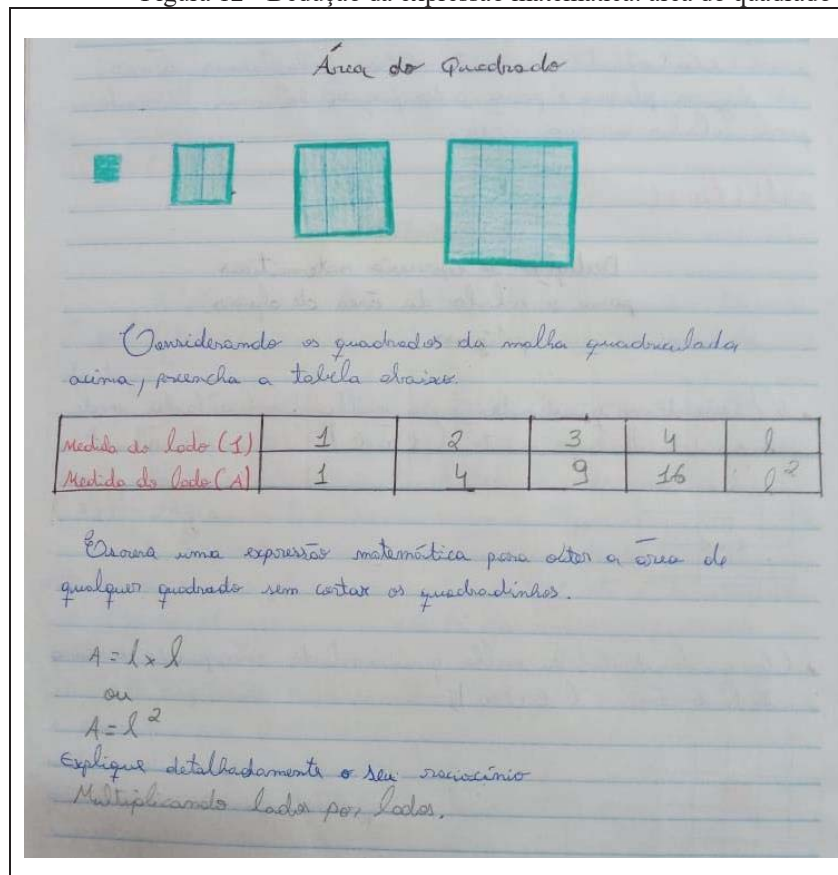 Área do Quadrado
Considerando os quadrados da malha quadriculada
acima, preencha a tabela abaixo.
Medida do lado (1) 1 2 3 4 l
Medida do lado (A) 1 4 9 16 l²
Escreva uma expressão matemática para obter a área de
qualquer quadrado sem contar os quadradinhos.
A = l x l
ou
A = l²
Explique detalhadamente o seu raciocínio
Multiplicando lados por lados.